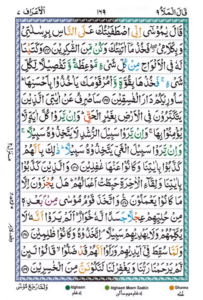 قَالَ الْمَلَاُ ٩ ١٦٩ الْاَعْرَاف ٧
قَالَ يٰمُوْسٰۤى اِنِّى اصْطَفَيْتُكَ عَلَى النَّاسِ بِرِسٰلٰتِىْ
وَبِكَلَامِىْ فَخُذْ مَاۤ اٰتَيْتُكَ وَكُنْ مِّنَ الشّٰكِرِيْنَ وَكَتَبْنَا
لَهٗ فِى الْاَلْوَاحِ مِنْ كُلِّ شَىْءٍ مَّوْعِظَةً وَّتَفْصِيْلًا لِّكُلِّ
شَىْءٍ فَخُذْهَا بِقُوَّةٍ وَّاْمُرْ قَوْمَكَ يَاْخُذُوْا بِاَحْسَنِهَا
سَاُورِيْكُمْ دَارَ الْفٰسِقِيْنَ سَاَصْرِفُ عَنْ اٰيٰتِىَ الَّذِيْنَ
يَتَكَبَّرُوْنَ فِى الْاَرْضِ بِغَيْرِ الْحَقِّ وَاِنْ يَّرَوْا كُلَّ اٰيَةٍ لَّا
يُؤْمِنُوْا بِهَا وَاِنْ يَّرَوْا سَبِيْلَ الرُّشْدِ لَا يَتَّخِذُوْهُ سَبِيْلًا
وَاِنْ يَّرَوْا سَبِيْلَ الْغَىِّ يَتَّخِذُوْهُ سَبِيْلًا ذٰلِكَ بِاَنَّهُمْ
كَذَّبُوْا بِاٰيٰتِنَا وَكَانُوْا عَنْهَا غٰفِلِيْنَ وَالَّذِيْنَ كَذَّبُوْا
بِاٰيٰتِنَا وَلِقَآءِ الْاٰخِرَةِ حَبِطَتْ اَعْمَالُهُمْ هَلْ يُجْزَوْنَ اِلَّا
مَا كَانُوْا يَعْمَلُوْنَ وَاتَّخَذَ قَوْمُ مُوْسٰى مِنْۢ بَعْدِهٖ
مِنْ حُلِيِّهِمْ عِجْلًا جَسَدًا لَّهٗ خُوَارٌ اَلَمْ يَرَوْا اَنَّهٗ لَا
يُكَلِّمُهُمْ وَلَا يَهْدِيْهِمْ سَبِيْلًا اِتَّخَذُوْهُ وَكَانُوْا ظٰلِمِيْنَ
وَلَمَّا سُقِطَ فِىْۤ اَيْدِيْهِمْ وَرَاَوْا اَنَّهُمْ قَدْ ضَلُّوْا قَالُوْا لَئِنْ
لَّمْ يَرْحَمْنَا رَبُّنَا وَيَغْفِرْ لَنَا لَنَكُوْنَنَّ مِنَ الْخٰسِرِيْنَ